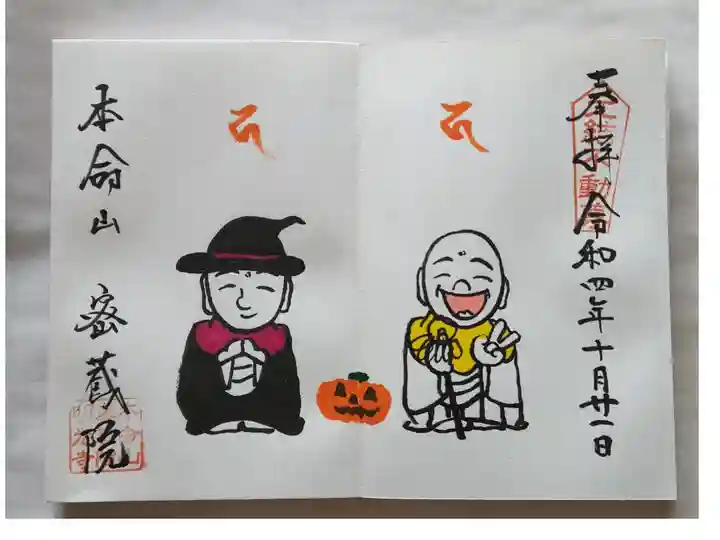 奉拝 令和四年十月廿一日
本命山 密蔵院